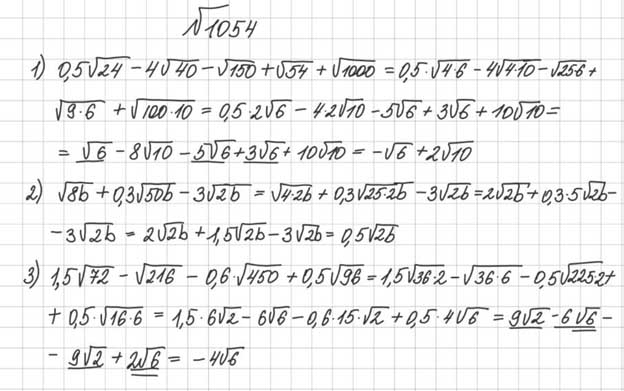 √1054
1) 0,5√24 − 4√40 − √150 + √54 + √1000 = 0,5·√4·6 − 4√4·10 − √256 +
√9·6 + √100·10 = 0,5·2√6 − 4·2√10 − 5√6 + 3√6 + 10√10 =
= √6 − 8√10 − 5√6 + 3√6 + 10√10 = −√6 + 2√10
2) √8b + 0,3√50b − 3√2b = √4·2b + 0,3√25·2b − 3√2b = 2√2b + 0,3·5√2b −
− 3√2b = 2√2b + 1,5√2b − 3√2b = 0,5√2b
3) 1,5√72 − √216 − 0,6·√450 + 0,5√96 = 1,5√36·2 − √36·6 − 0,5√225·2 +
+ 0,5·√16·6 = 1,5·6√2 − 6√6 − 0,6·15·√2 + 0,5·4√6 = 9√2 − 6√6 −
− 9√2 + 2√6 = −4√6